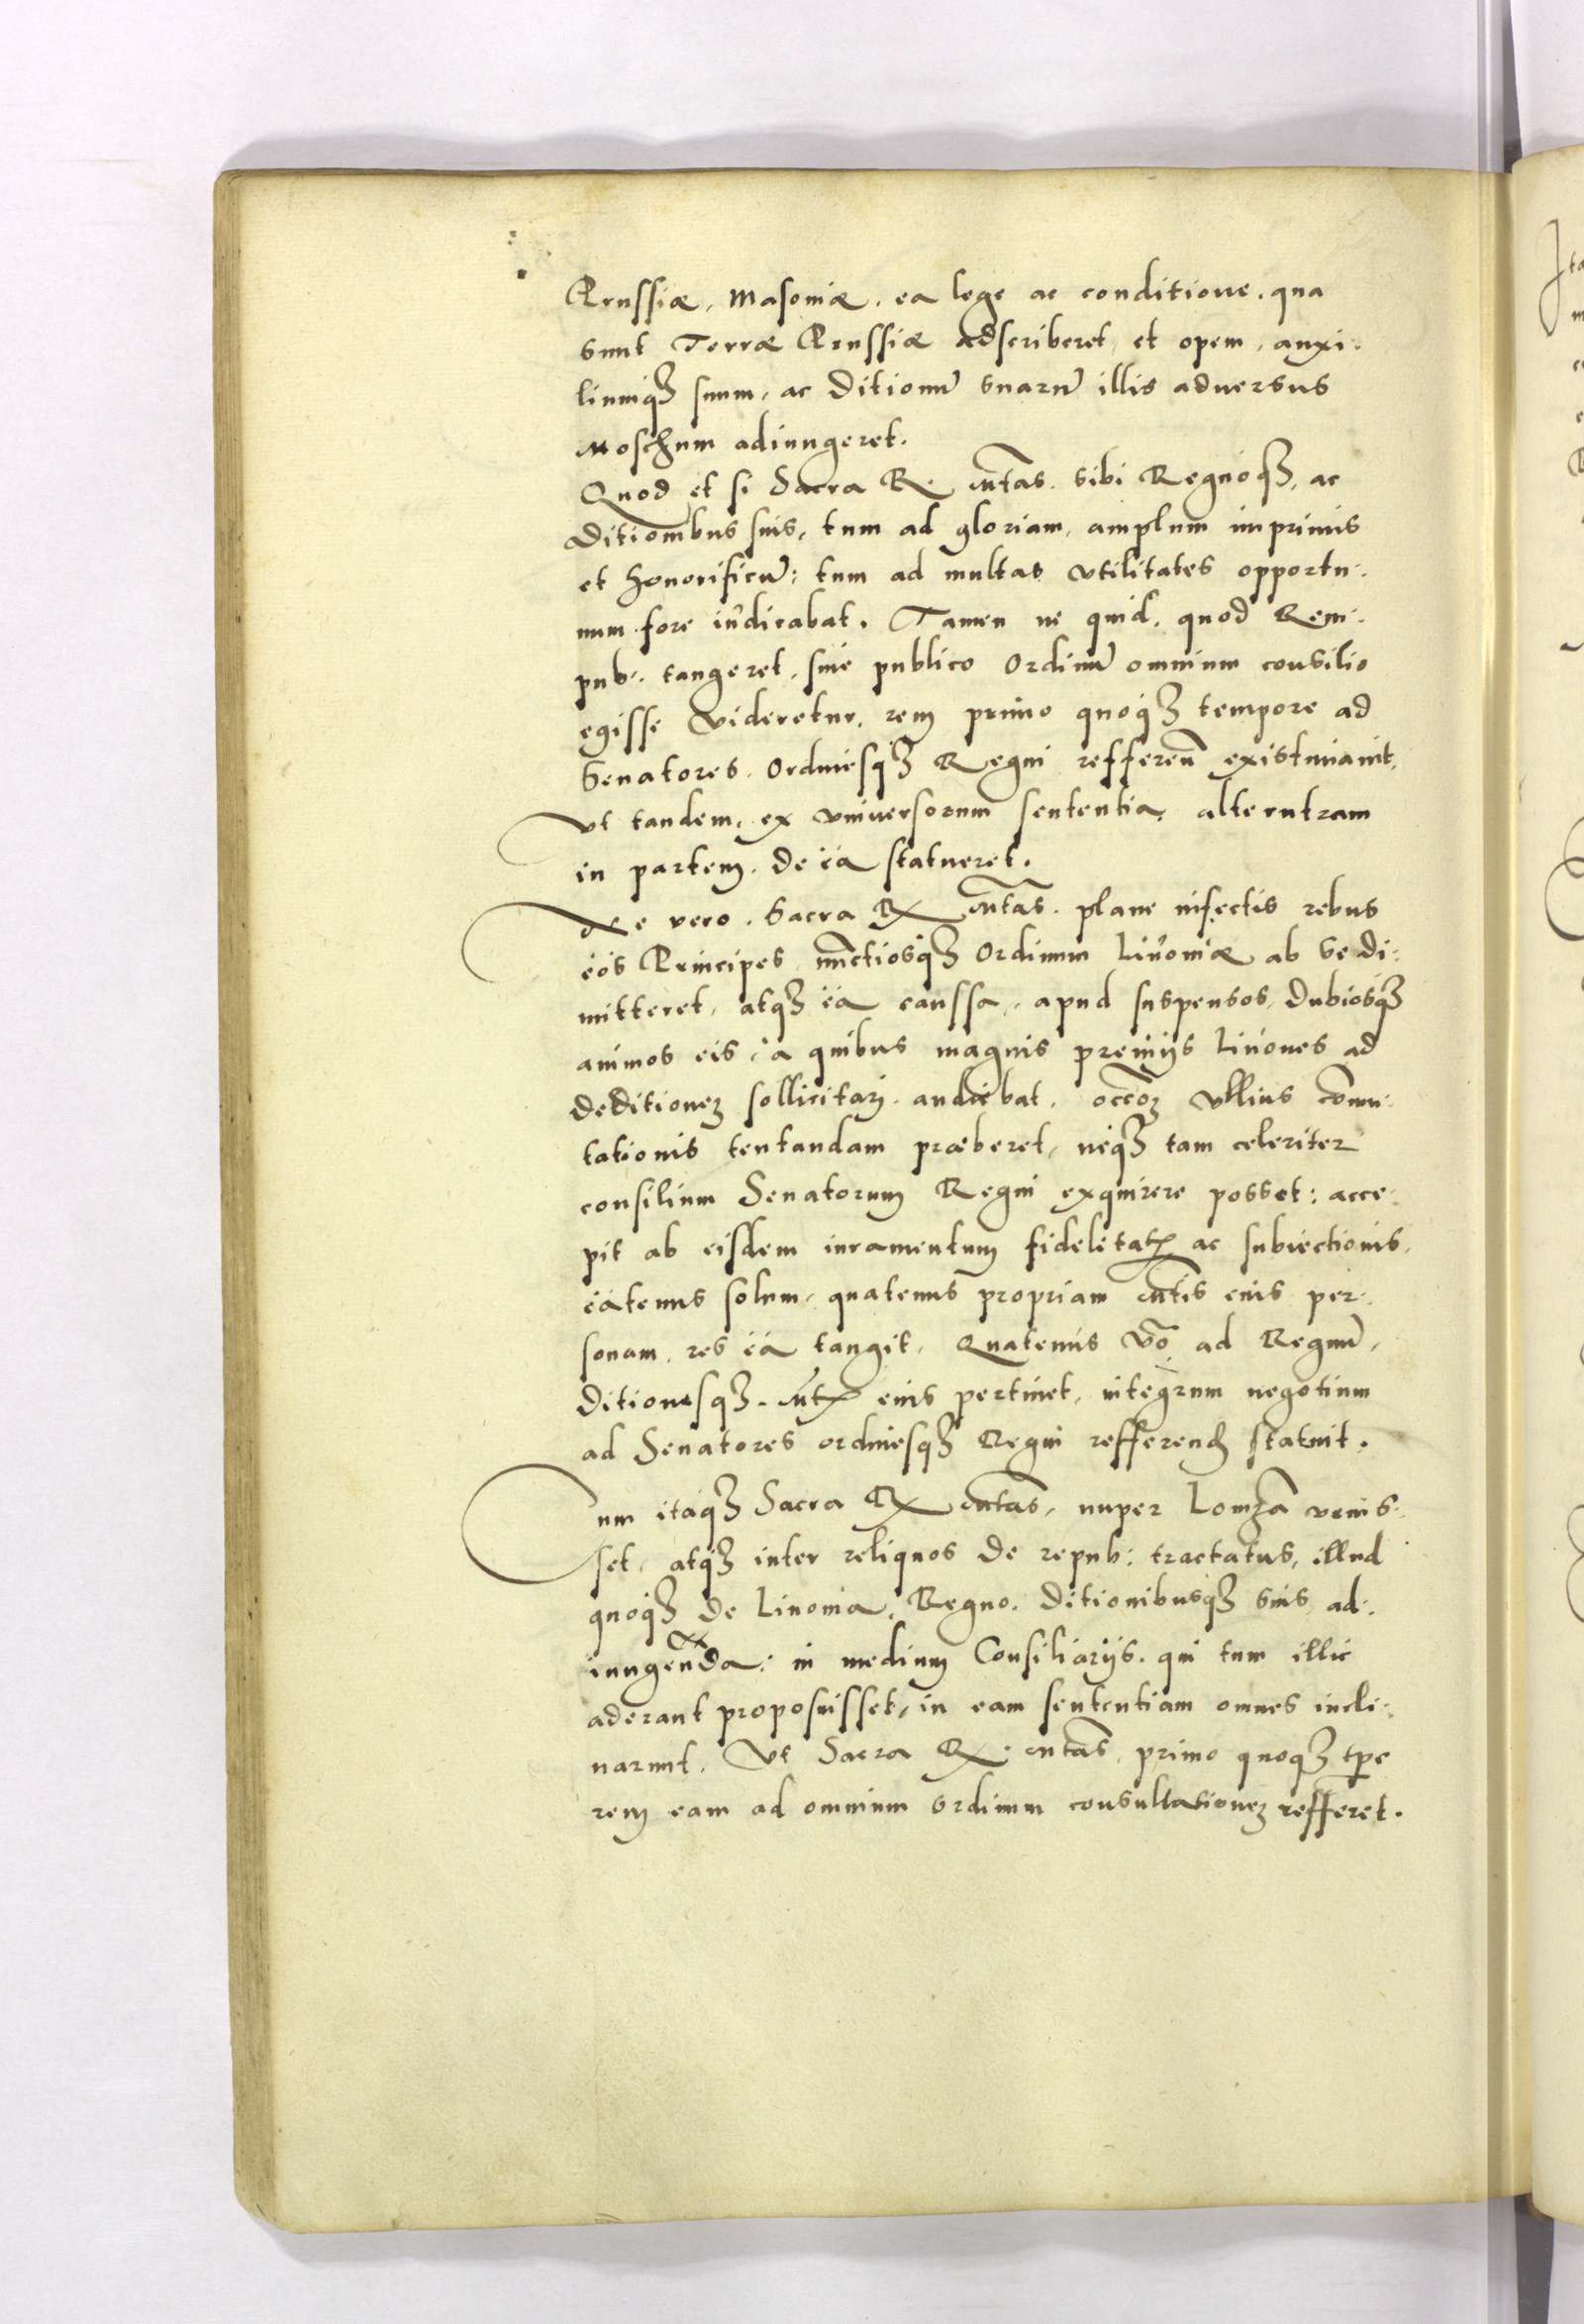 Prussiæ, Masoviæ, ea lege ac conditione, qua
sunt Terræ Prussiæ adscriberet, et opem, auxi-
liumq3 suum, ac Ditionũ suarũ illis adversus
Moschum adiungeret.
Quod et si Sacra R. Mtas. sibi Regnoq3, ac
Ditionibus suis, tum ad gloriam, amplum imprimis
et honorificũ: tum ad multas vtilitates opportu-
num fore iudicabat. Tamen ne quid, quod Rem-
pub. tangeret, sine publico Ordinũ omnium consilio
egisse videretur, rem primo quoq3 tempore ad
Senatores, Ordinesq3 Regni refferen̄ existimauit,
vt tandem, ex vniuersorum sententia, alterutram
in partem, de ea statueret.
Ne vero, Sacra R. Mtas. plane infectis rebus
eos Principes, nunctiosq3 Ordinum Liuoniæ ab se di-
mitteret, atq3 ea caussa, apud suspensos, Dubiosq3
animos eis, a quibus magnis premijs Liuones ad
deditionem sollicitari audiebat, occom vllius commu-
tationis tentandam præberet, neq3 tam celeriter
consilium Senatorum Regni exquirere posset: acce-
pit ab eisdem iuramentum fidelitatis ac subiectionis,
eatenus solum, quatenus propriam Mtis eius per-
sonam, res ea tangit, Quatenus vo ad Regnũ,
Ditionesq3 Mtis eius pertinet, integrum negotium
ad Senatores ordinesq3 Regni refferend statuit.
Cum itaq3 Sacra R. Mtas, nuper Lomzā venis-
set, atq3 inter reliquos de repub: tractatus, illud
quoq3 de Liuonia, Regno, Ditionibusq3 suis, ad-
iungenda: in medium Consiliarijs, qui tum illic
aderant proposuisset, in eam sententiam omnes incli-
narunt, Vt Sacra R. Mtas, primo quoq3 tpe
rem eam ad omnium ordinum consultationem refferet.